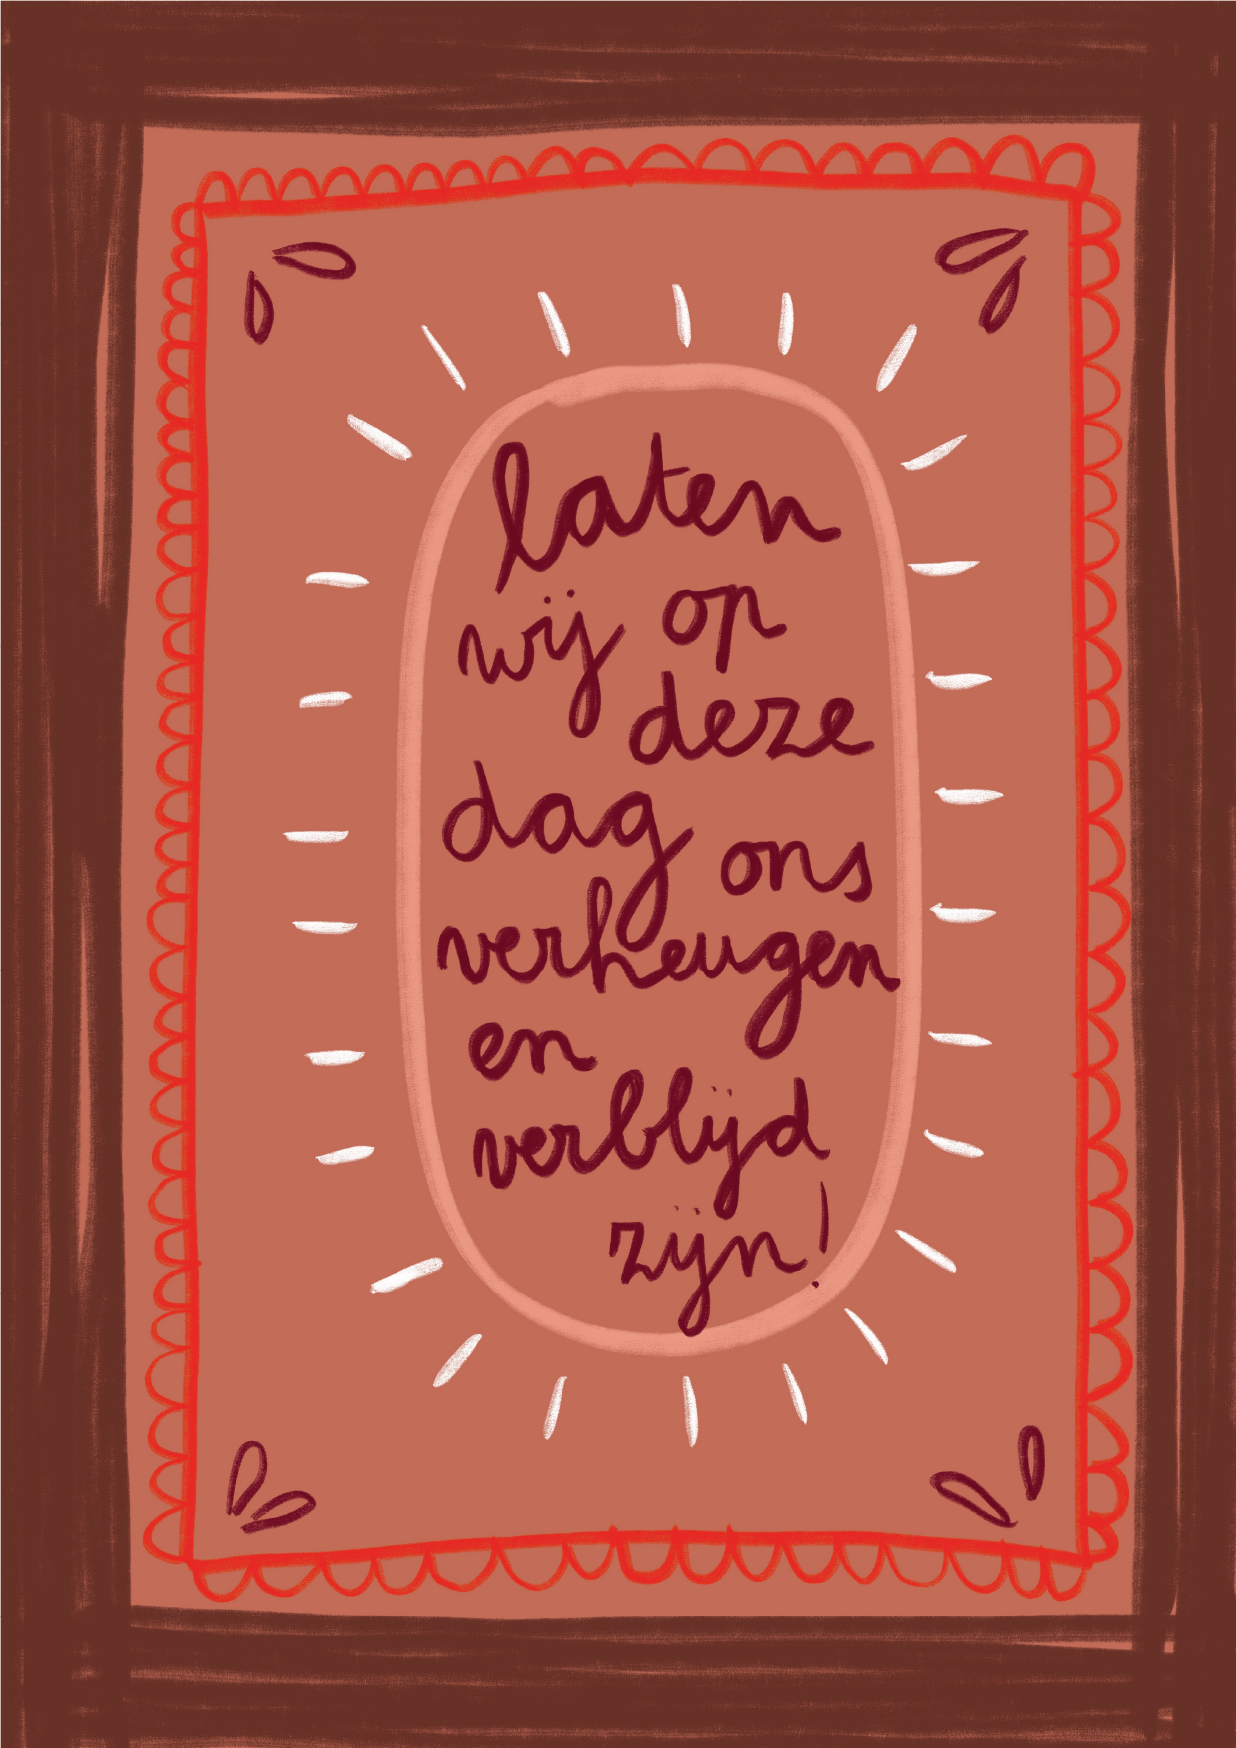 laten
wij op
deze
dag ons
verheugen
en
verblijd
zijn!